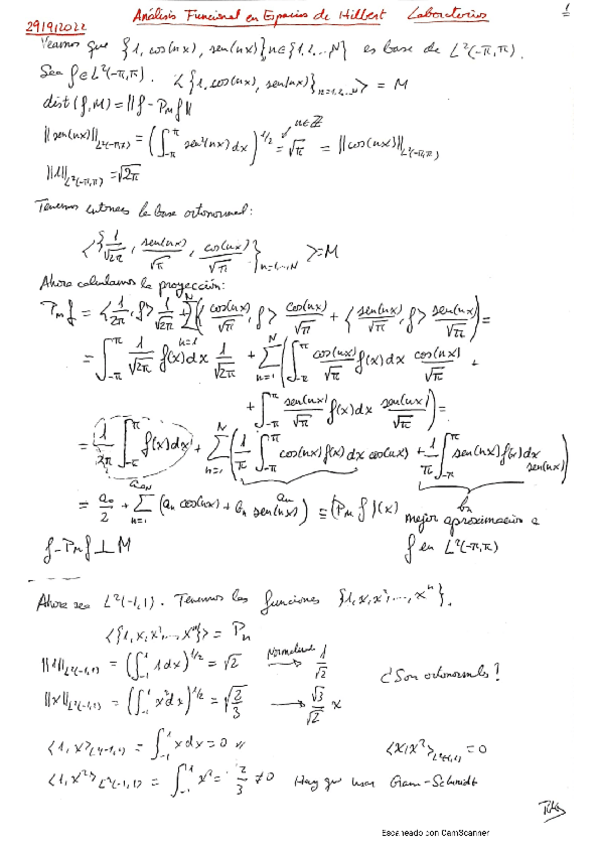 29/9/2022 Análisis Funcional en Espacios de Hilbert Laboratorios 1
Veamos que {1, cos(nx), sen(nx)}, n∈{1,2,...N} es base de L²(-π,π).
Sea f∈L²(-π,π). <{1, cos(nx), sen(nx)}_{n=1,2,..N}> = M
dist(f,M) = ||f - P_M f||
||sen(nx)||_{L²(-π,π)} = (∫_{-π}^{π} sen²(nx) dx)^{1/2} = √π = ||cos(nx)||_{L²(-π,π)} n∈ℤ
||1||_{L²(-π,π)} = √2π
Tenemos entonces la base ortonormal:
<{1/√2π, sen(nx)/√π, cos(nx)/√π}_{n=1,...,N}> = M
Ahora calculamos la proyección:
P_M f = <1/2π, f> 1/√2π + Σ_{n=1}^{N} (<cos(nx)/√π, f> cos(nx)/√π + <sen(nx)/√π, f> sen(nx)/√π) =
= ∫_{-π}^{π} 1/√2π f(x)dx 1/√2π + Σ_{n=1}^{N} (∫_{-π}^{π} cos(nx)/√π f(x)dx cos(nx)/√π +
+ ∫_{-π}^{π} sen(nx)/√π f(x)dx sen(nx)/√π) =
= 1/2π ∫_{-π}^{π} f(x)dx + Σ_{n=1}^{N} (1/π ∫_{-π}^{π} cos(nx)f(x)dx cos(nx) + 1/π ∫_{-π}^{π} sen(nx)f(x)dx sen(nx))
= a₀/2 + Σ_{n=1}^{N} (aₙ cos(nx) + bₙ sen(nx)) = (P_M f)(x) aₙ bₙ
mejor aproximación a
f - P_M f ⊥ M f en L²(-π,π)
Ahora sea L²(-1,1). Tenemos las funciones {1,x,x²,...,xⁿ}.
<{1,x,x²,...,xⁿ}> = Pₙ
||1||_{L²(-1,1)} = (∫_{-1}^{1} 1dx)^{1/2} = √2 Normalizando → 1/√2
¿Son ortonormales?
||x||_{L²(-1,1)} = (∫_{-1}^{1} x²dx)^{1/2} = √(2/3) → √3/√2 x
<1,x>_{L²(-1,1)} = ∫_{-1}^{1} xdx = 0 <x,x²>_{L²(-1,1)} = 0
<1,x²>_{L²(-1,1)} = ∫_{-1}^{1} x² = 2/3 ≠ 0 Hay que usar Gram-Schmidt
Escaneado con CamScanner